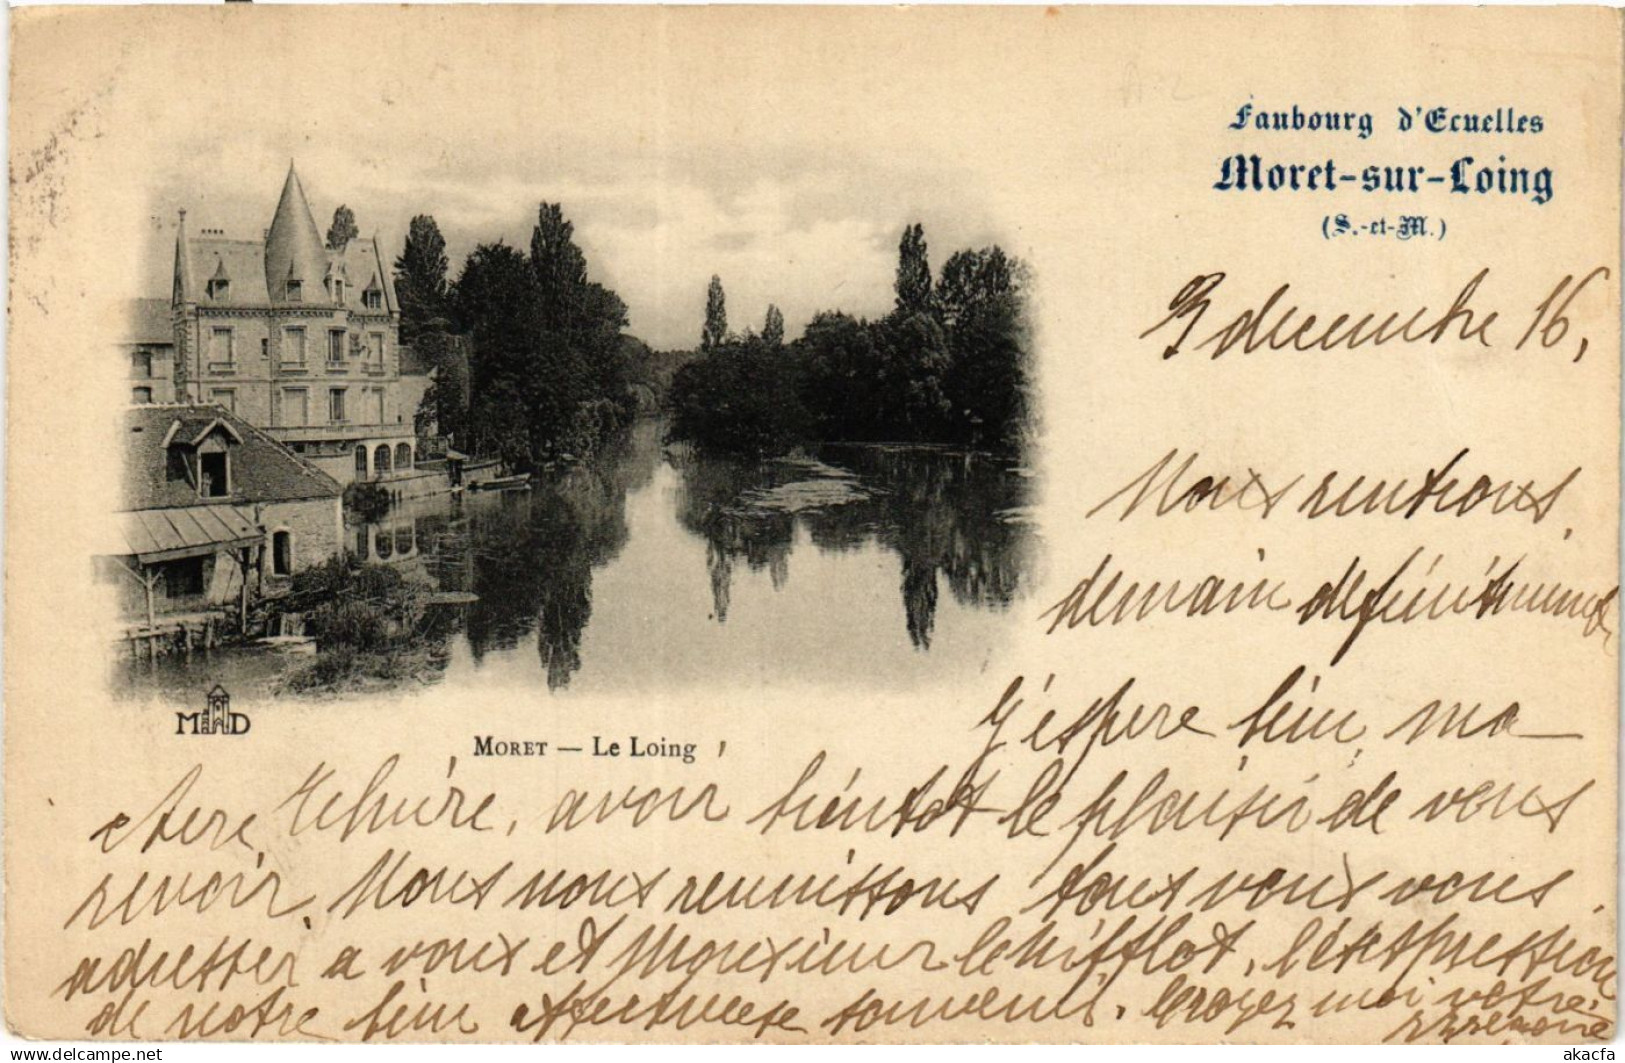 Faubourg d'Ecuelles
Moret-sur-Loing
(S.-et-M.)
3 decembre 16,
Nous rentrons
demain définitivement
j'espère bien, ma
MD
Moret — Le Loing
chere, avoir bientot le plaisir de vous
revoir. Nous nous reunissons tous pour vous
adresser a vous et Monsieur l'expression
de notre bien affectueux souvenir. Croyez moi votre
akacfa